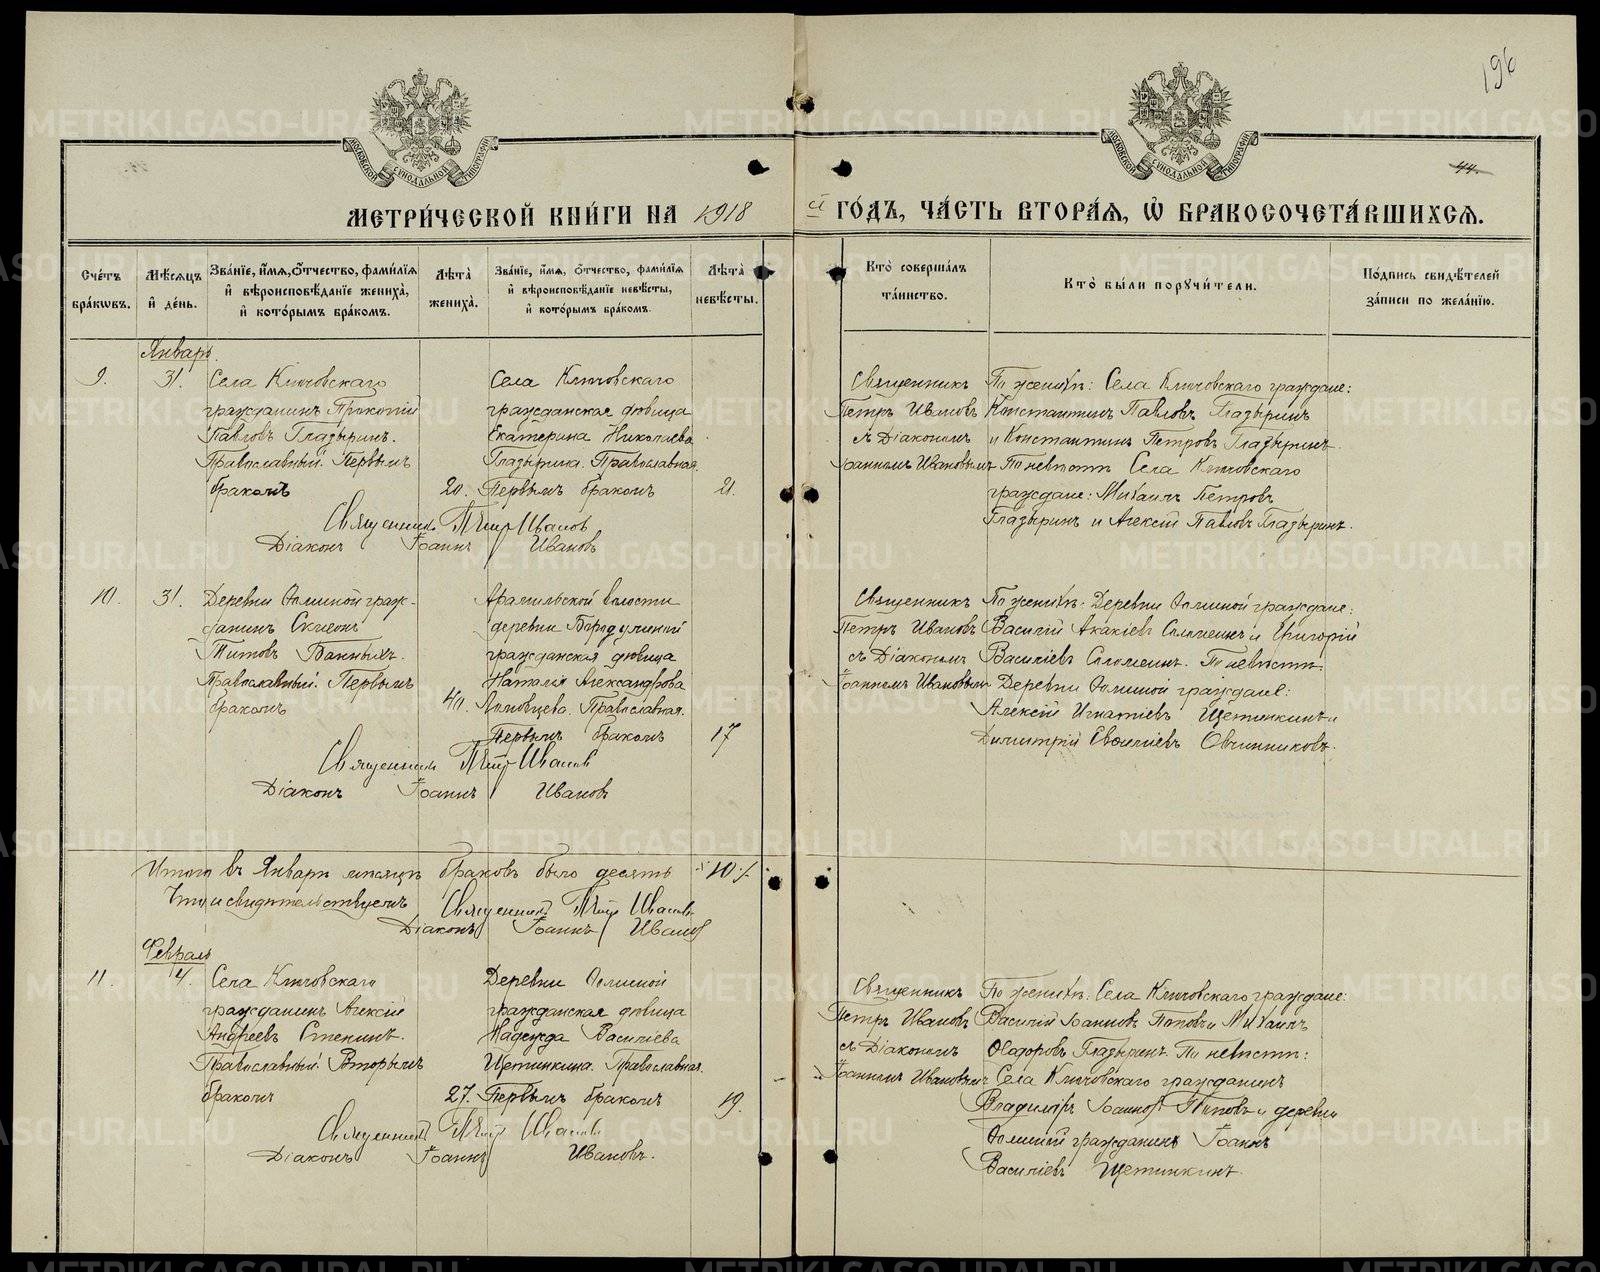 196
44.
МОСКОВСКОЙ СѴНОДАЛЬНОЙ ТИПОГРАФІИ
МОСКОВСКОЙ СѴНОДАЛЬНОЙ ТИПОГРАФІИ
МЕТРИ́ЧЕСКОЙ КНИ́ГИ НА 1918 й ГО́ДЪ, ЧА́СТЬ ВТОРА́Я, Ѽ БРАКОСОЧЕТА́ВШИХСЯ.
Сче́тъ бра́кѡвъ.
Мѣ́сяцъ и҆ де́нь.
Зва́нїе, и҆́мя, ѻ҆́тчество, фами́лїя и҆ вѣроисповѣ́данїе жениха̀, и҆ кото́рымъ бра́комъ.
Лѣ́та жениха̀.
Зва́нїе, и҆́мя, ѻ҆́тчество, фами́лїя и҆ вѣроисповѣ́данїе невѣ́сты, и҆ кото́рымъ бра́комъ.
Лѣ́та невѣ́сты.
Кто̀ соверша́лъ та́инство.
Кто̀ бы́ли порꙋчи́тели.
По́дпись свидѣ́телей за́писи по жела́нїю.
Январь.
9.
31.
Села Ключовскаго
гражданинъ Прокопій
Павловъ Глазыринъ.
Православный. Первымъ
бракомъ
20.
Села Ключовскаго
гражданская дѣвица
Екатерина Николаева
Глазырина. Православная.
Первымъ бракомъ
21.
Священникъ
Петръ Ивановъ
съ Діакономъ
Іоанномъ Ивановымъ
По женихѣ: Села Ключовскаго граждане:
Константинъ Павловъ Глазыринъ
и Константинъ Петровъ Глазыринъ.
По невѣстѣ Села Ключовскаго
граждане: Михаилъ Петровъ
Глазыринъ и Алексій Павловъ Глазыринъ.
Священникъ Петръ Ивановъ
Діаконъ Іоаннъ Ивановъ
10.
31.
Деревни Фоминой граж-
данинъ Симеонъ
Титовъ Банныхъ.
Православный. Первымъ
бракомъ
40.
Арамильской волости
деревни Бородулиной
гражданская дѣвица
Наталія Александрова
Православная.
Первымъ бракомъ
17
Священникъ
Петръ Ивановъ
съ Діакономъ
Іоанномъ Ивановымъ
По женихѣ: Деревни Фоминой граждане:
Василій Акакіевъ Соломеинъ и Григорій
Василіевъ Соломеинъ. По невѣстѣ
Деревни Фоминой граждане:
Алексій Игнатіевъ Щетинкинъ и
Димитрій Евфиміевъ Овчинниковъ.
Священникъ Петръ Ивановъ
Діаконъ Іоаннъ Ивановъ
Итого въ Январѣ мѣсяцѣ браковъ было десять 10
Что и свидѣтельствуемъ Священникъ Петръ Ивановъ
Діаконъ Іоаннъ Ивановъ
Февраль
11.
4.
Села Ключовскаго
гражданинъ Алексій
Андреевъ Степинъ.
Православный. Вторымъ
бракомъ
27.
Деревни Фоминой
гражданская дѣвица
Надежда Василіева
Щетинкина. Православная.
Первымъ бракомъ
19.
Священникъ
Петръ Ивановъ
съ Діакономъ
Іоанномъ Ивановымъ
По женихѣ: Села Ключовскаго граждане:
Василій Іоанновъ Поповъ и Михаилъ
Ѳеодоровъ Глазыринъ. По невѣстѣ:
Села Ключовскаго гражданинъ
Владиміръ Іоанновъ Поповъ и деревни
Фоминой гражданинъ Іоаннъ
Василіевъ Щетинкинъ.
Священникъ Петръ Ивановъ
Діаконъ Іоаннъ Ивановъ.
METRIKI.GASO-URAL.RU